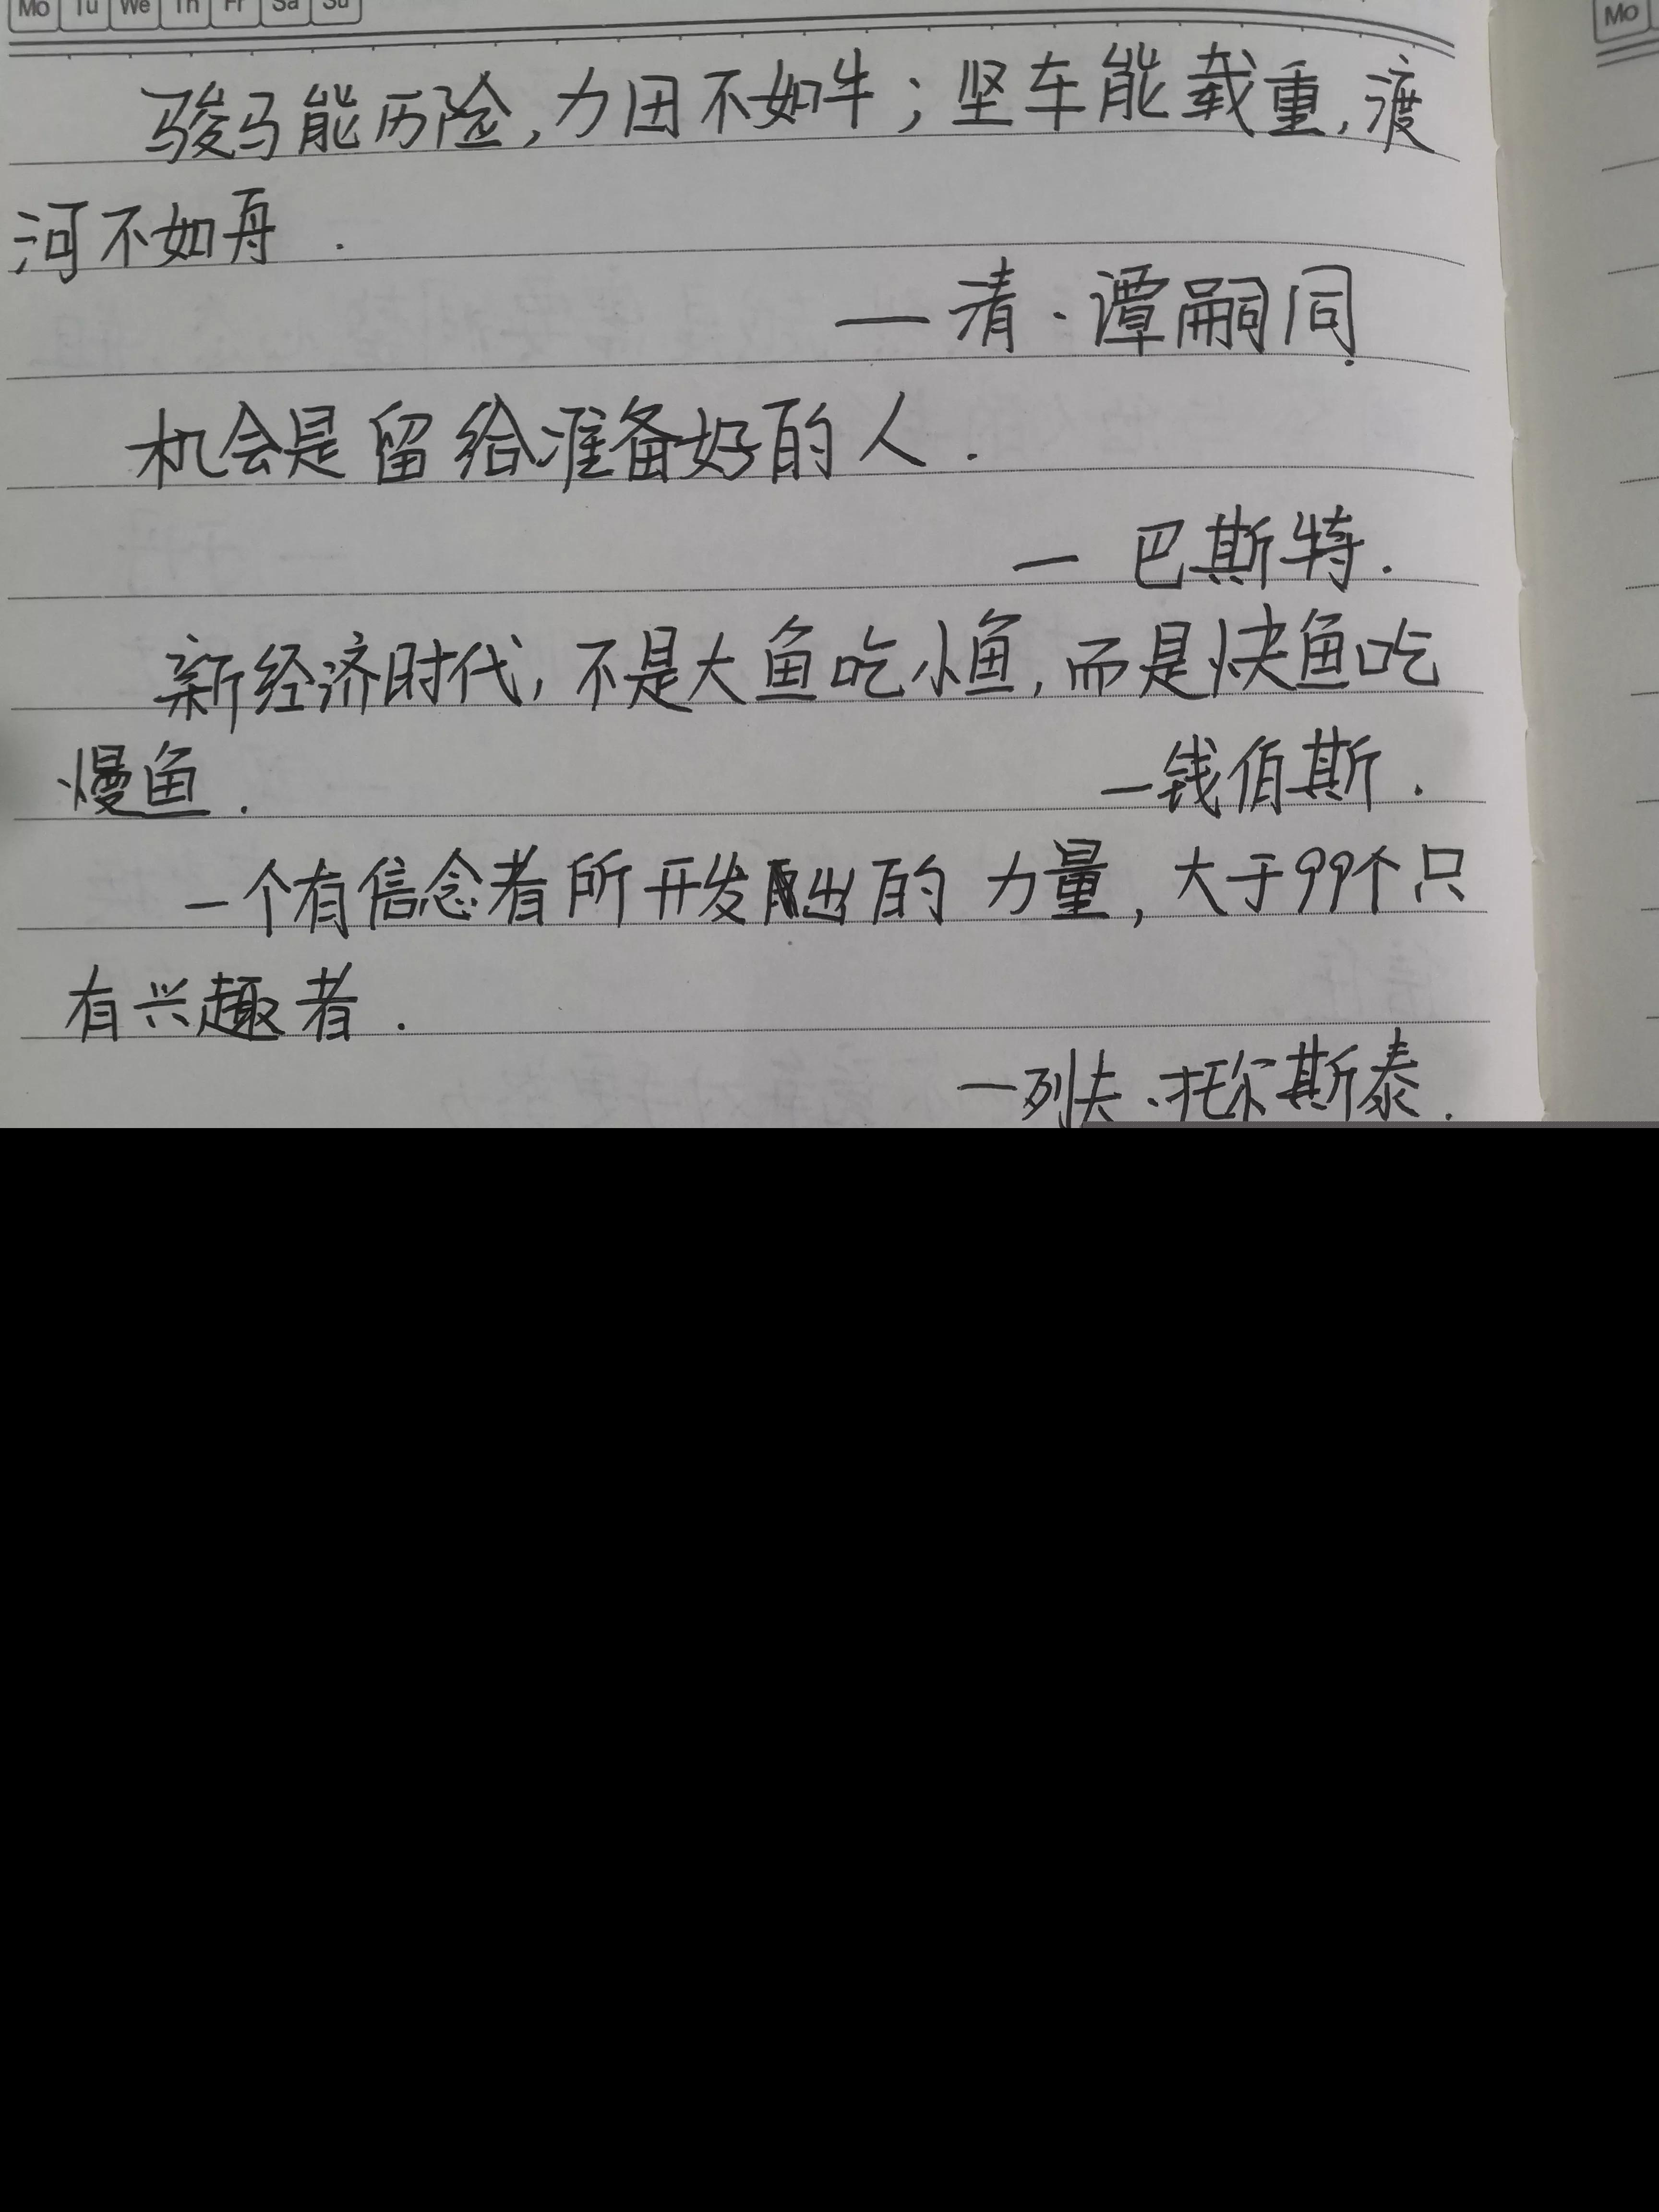 Mo Tu We Th Fr Sa Su
Mo
骏马能历险,力田不如牛;坚车能载重,渡
河不如舟.
—清·谭嗣同.
机会是留给准备好的人.
—巴斯特.
新经济时代,不是大鱼吃小鱼,而是快鱼吃
慢鱼.
—钱伯斯.
一个有信念者所开发出的力量,大于99个只
有兴趣者.
—列夫·托尔斯泰.